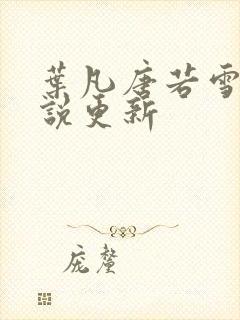 葉凡唐若雪
說更新
庞釐